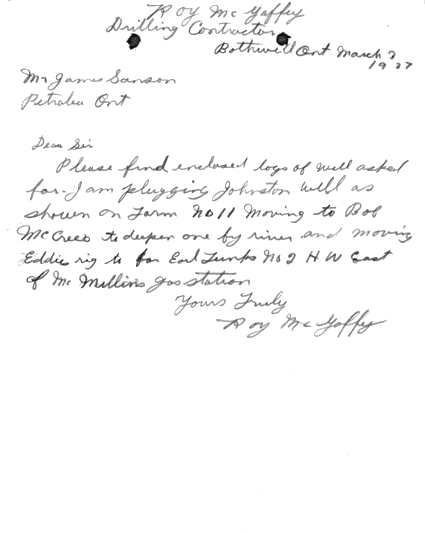 Roy Mc Gaffey
Drilling Contractor
Bothwell Ont March 2
1937
Mr James Sanson
Petrolea Ont
Dear Sir
Please find enclosed logs of well asked
for - I am plugging Johnston well as
shown on Form No 11 Moving to Bob
McCrees to deeper one by river and moving
Eddie rig to for Earl No 2 H W East
of Mc Millins gas station
Yours Truly
Roy Mc Gaffey